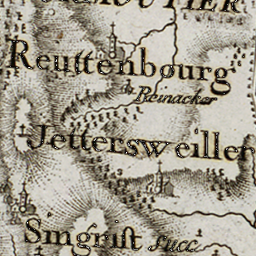 Reuttenbourg
Reinacker
Jettersweiller
Singrist succ